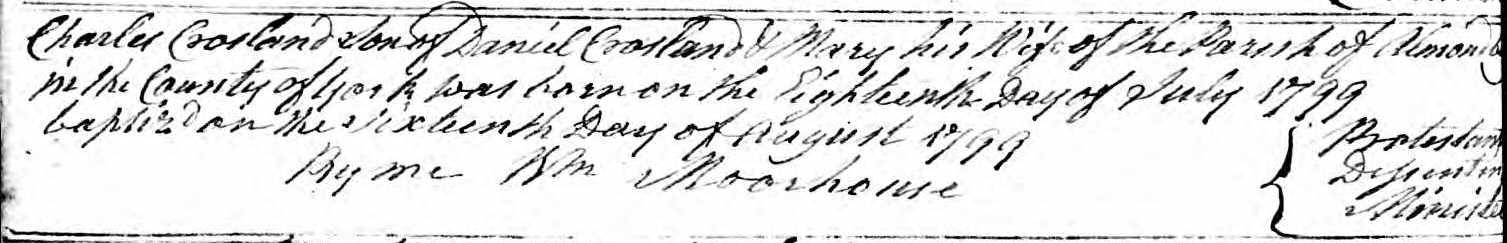 Charles Crosland Son of Daniel Crosland & Mary his Wife of the Parish of Almond
in the County of York was born on the Eighteenth Day of July 1799
baptiz'd on the Sixteenth Day of August 1799
By me Wm Moorhouse
Protestan
Dissentin
Ministe